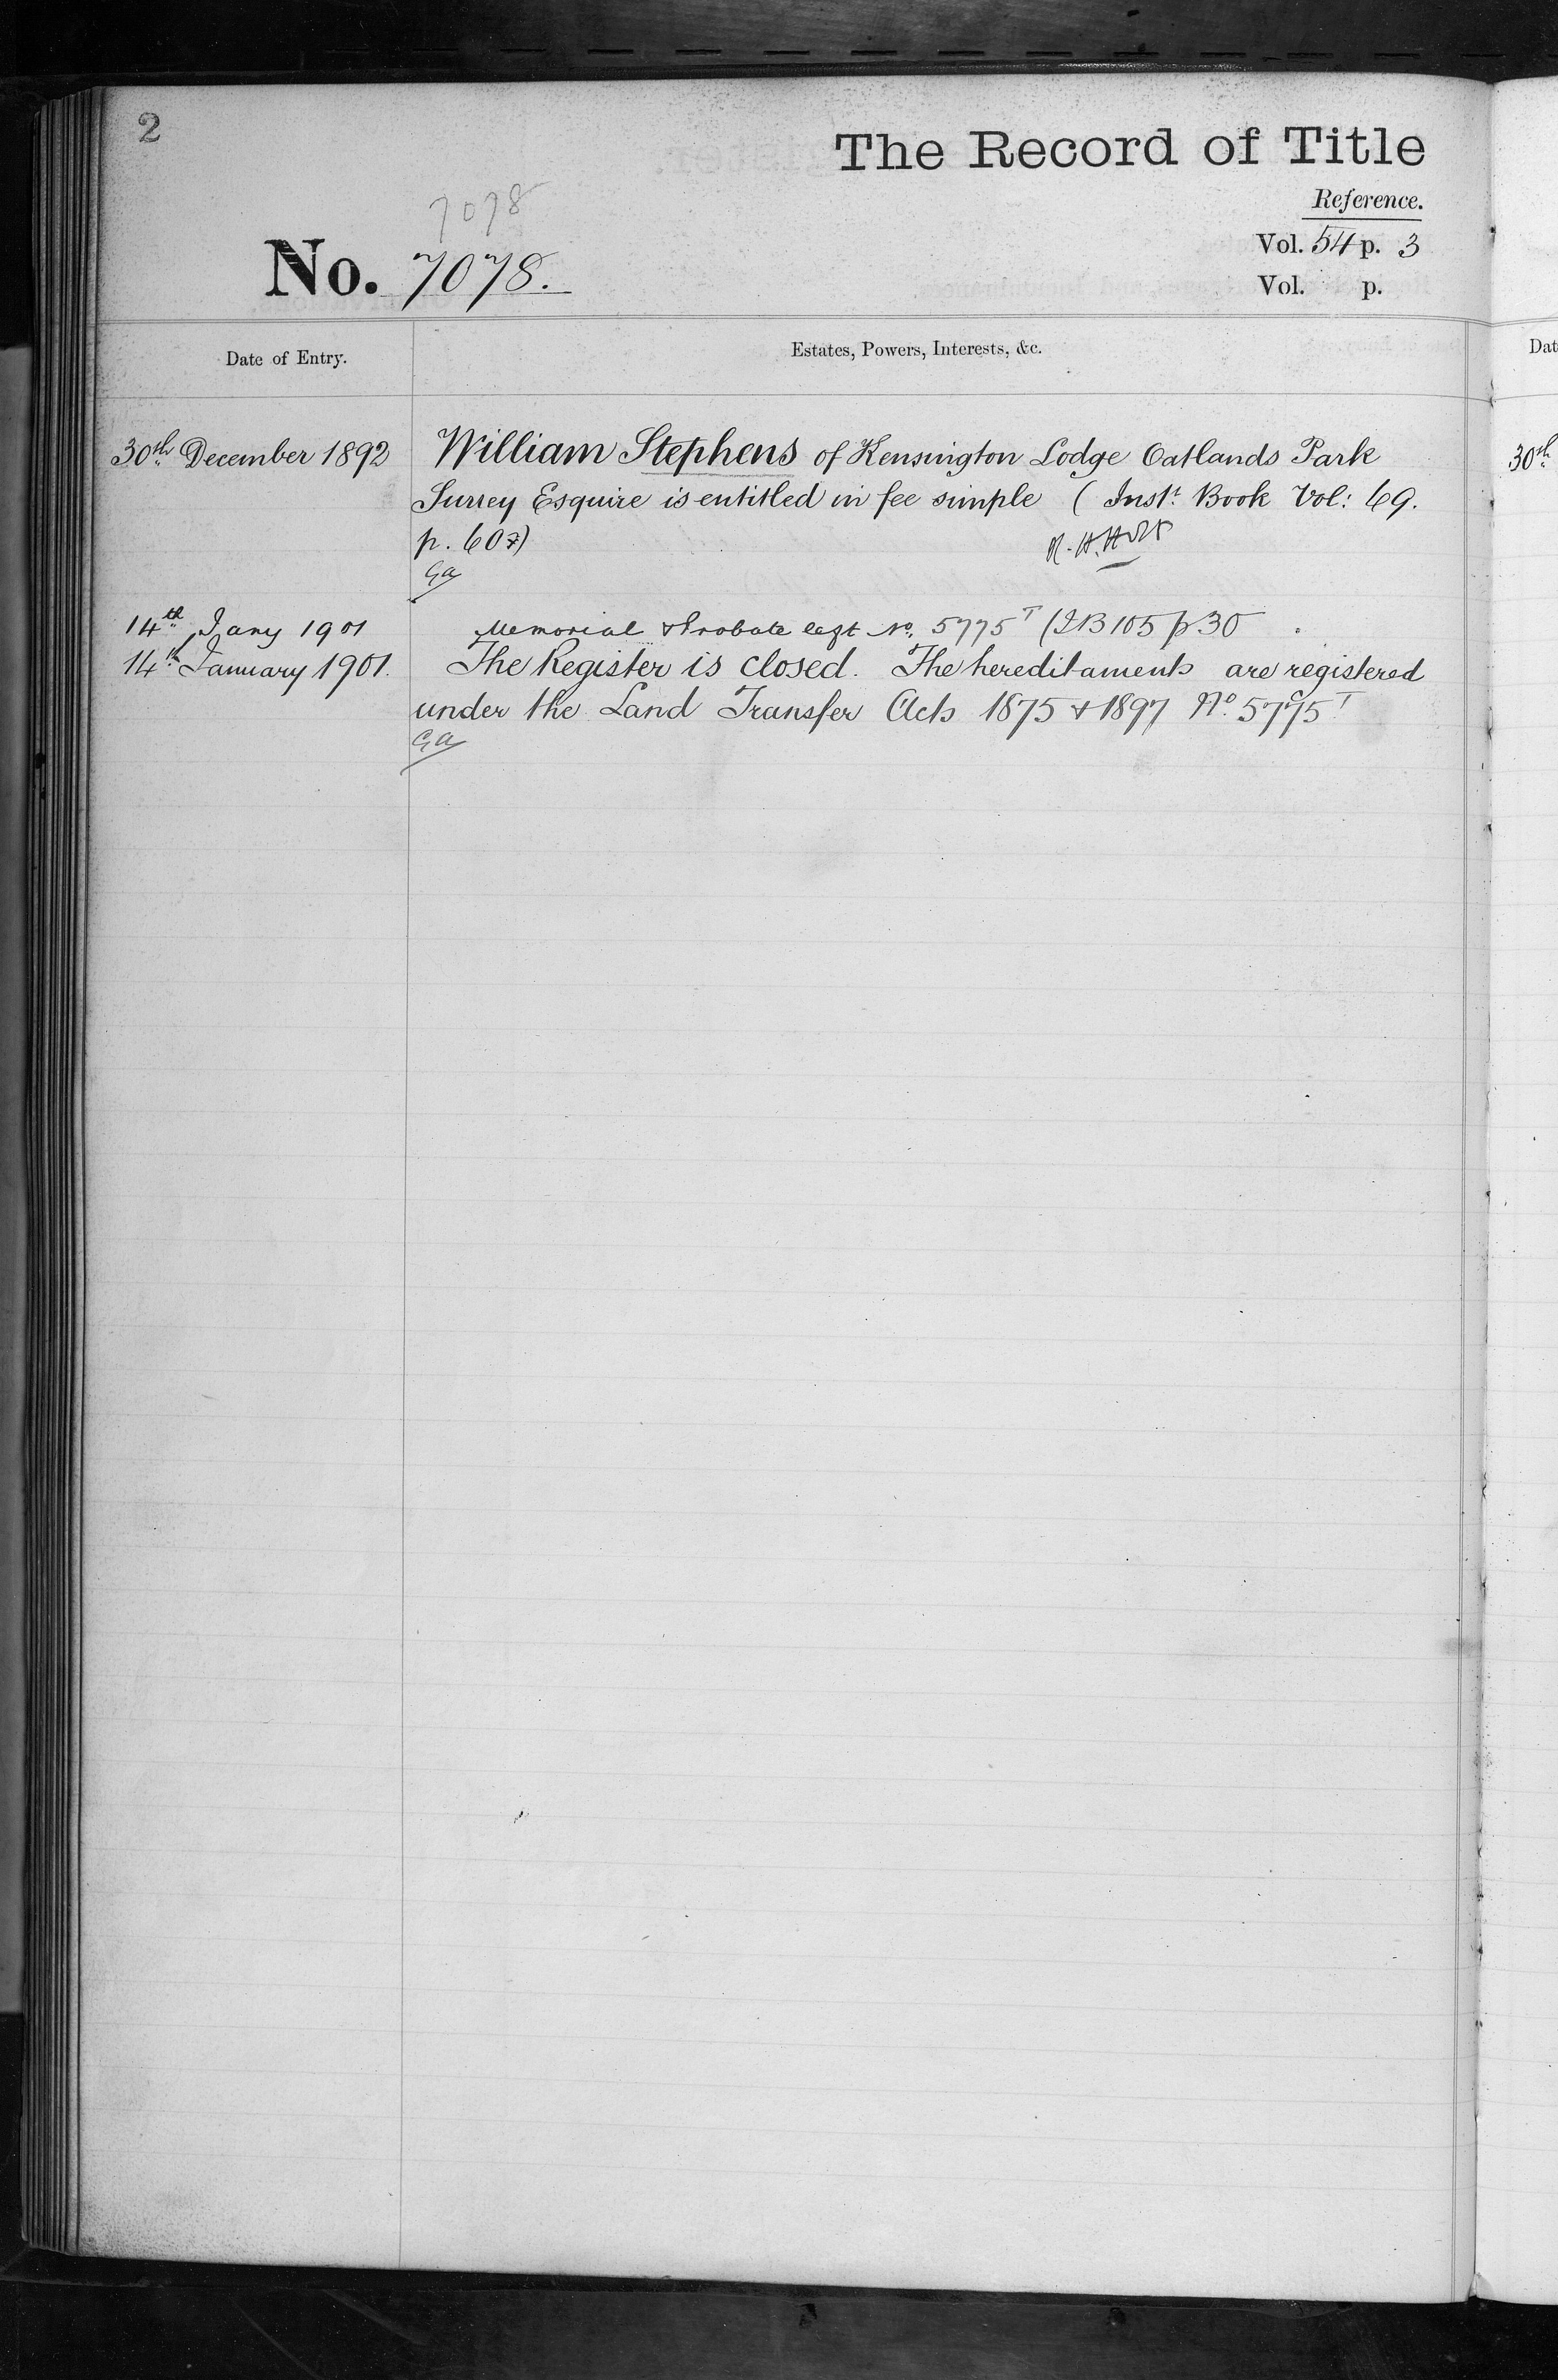 2
The Record of Title
Reference.
7078
Vol. 54 p. 3
No. 7078.
Vol. p.
Date of Entry.
Estates, Powers, Interests, &c.
Dat
30th December 1892
William Stephens of Kensington Lodge Oatlands Park
30th
Surrey Esquire is entitled in fee simple (Inst. Book Vol: 69.
p. 607)
R. H. Holt
Ga
14th Jany 1901
Memorial & Probate left No. 5775T (IB 105 p 30
14th January 1901.
The Register is closed. The hereditaments are registered
under the Land Transfer Acts 1875 & 1897 No. 5775T
Ga